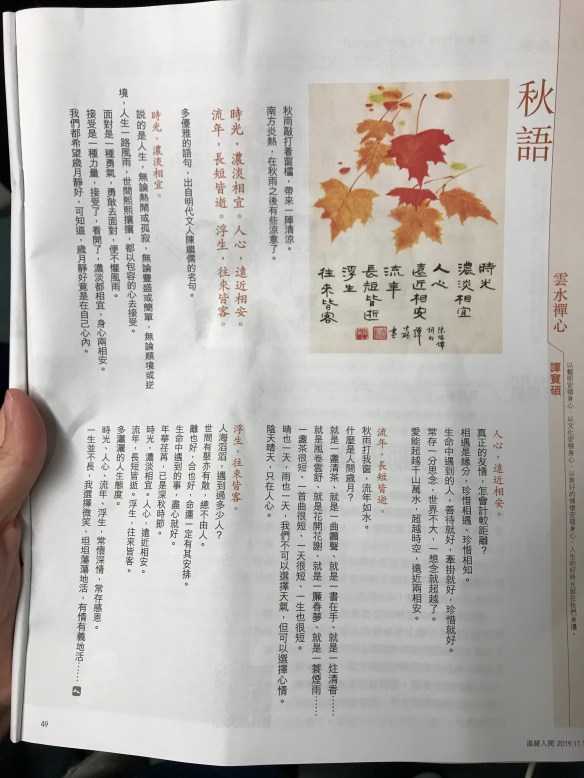 秋語
雲水禪心
譚寶碩
以藝術安頓身心，以文化安頓身心，以美好的情懷安頓身心，人生的好時光就在我們身邊。
時光
濃淡相宜
人心
遠近相安
流年
長短皆逝
浮生
往來皆客
秋雨敲打着窗檔，帶來一陣清涼。
南方炎熱，在秋雨之後有些涼意了。
時光，濃淡相宜。人心，遠近相安。
流年，長短皆逝。浮生，往來皆客。
多優雅的語句，出自明代文人陳繼儒的名句。
時光，濃淡相宜。
說的是人生，無論熱鬧或孤寂，無論豐盛或簡單，無論順境或逆
境，人生一路風雨，世間熙熙攘攘，都以包容的心去接受。
面對是一種勇氣，勇敢去面對，便不懼風雨。
接受是一種力量，接受了，看開了，濃淡都相宜，身心兩相安。
我們都希望歲月靜好，可知道，歲月靜好竟是在自己心內。
人心，遠近相安。
真正的友情，怎會計較距離？
相遇是緣分，珍惜相遇、珍惜相知。
生命中遇到的人，善待就好，牽掛就好，珍惜就好。
常存一分思念，世界不大，一想念就超越了。
愛能超越千山萬水，超越時空，遠近兩相安。
流年，長短皆逝。
秋雨打我窗，流年如水。
什麼是人間歲月？
就是一盞清茶、就是一曲簫聲、就是一書在手、就是一炷清香……
就是風卷雲舒、就是花開花謝、就是一簾春夢、就是一蓑煙雨……
一盞茶很短、一首曲很短、一天很短、一生也很短。
晴也一天，雨也一天，我們不可以選擇天氣，但可以選擇心情。
陰天晴天，只在人心。
浮生，往來皆客。
人海滔滔，遇到過多少人？
世間有聚亦有散，總不由人。
離也好，合也好，命運一定有其安排。
生命中遇到的事，盡心就好。
年華荏苒，已是深秋時節。
時光，濃淡相宜。人心，遠近相安。
流年，長短皆逝。浮生，往來皆客。
多瀟灑的人生態度。
時光、人心，流年，浮生，常懷深情，常存感恩。
一生並不長，我選擇微笑，坦坦蕩蕩地活，有情有義地活……
49
溫暖人間 2019.11.